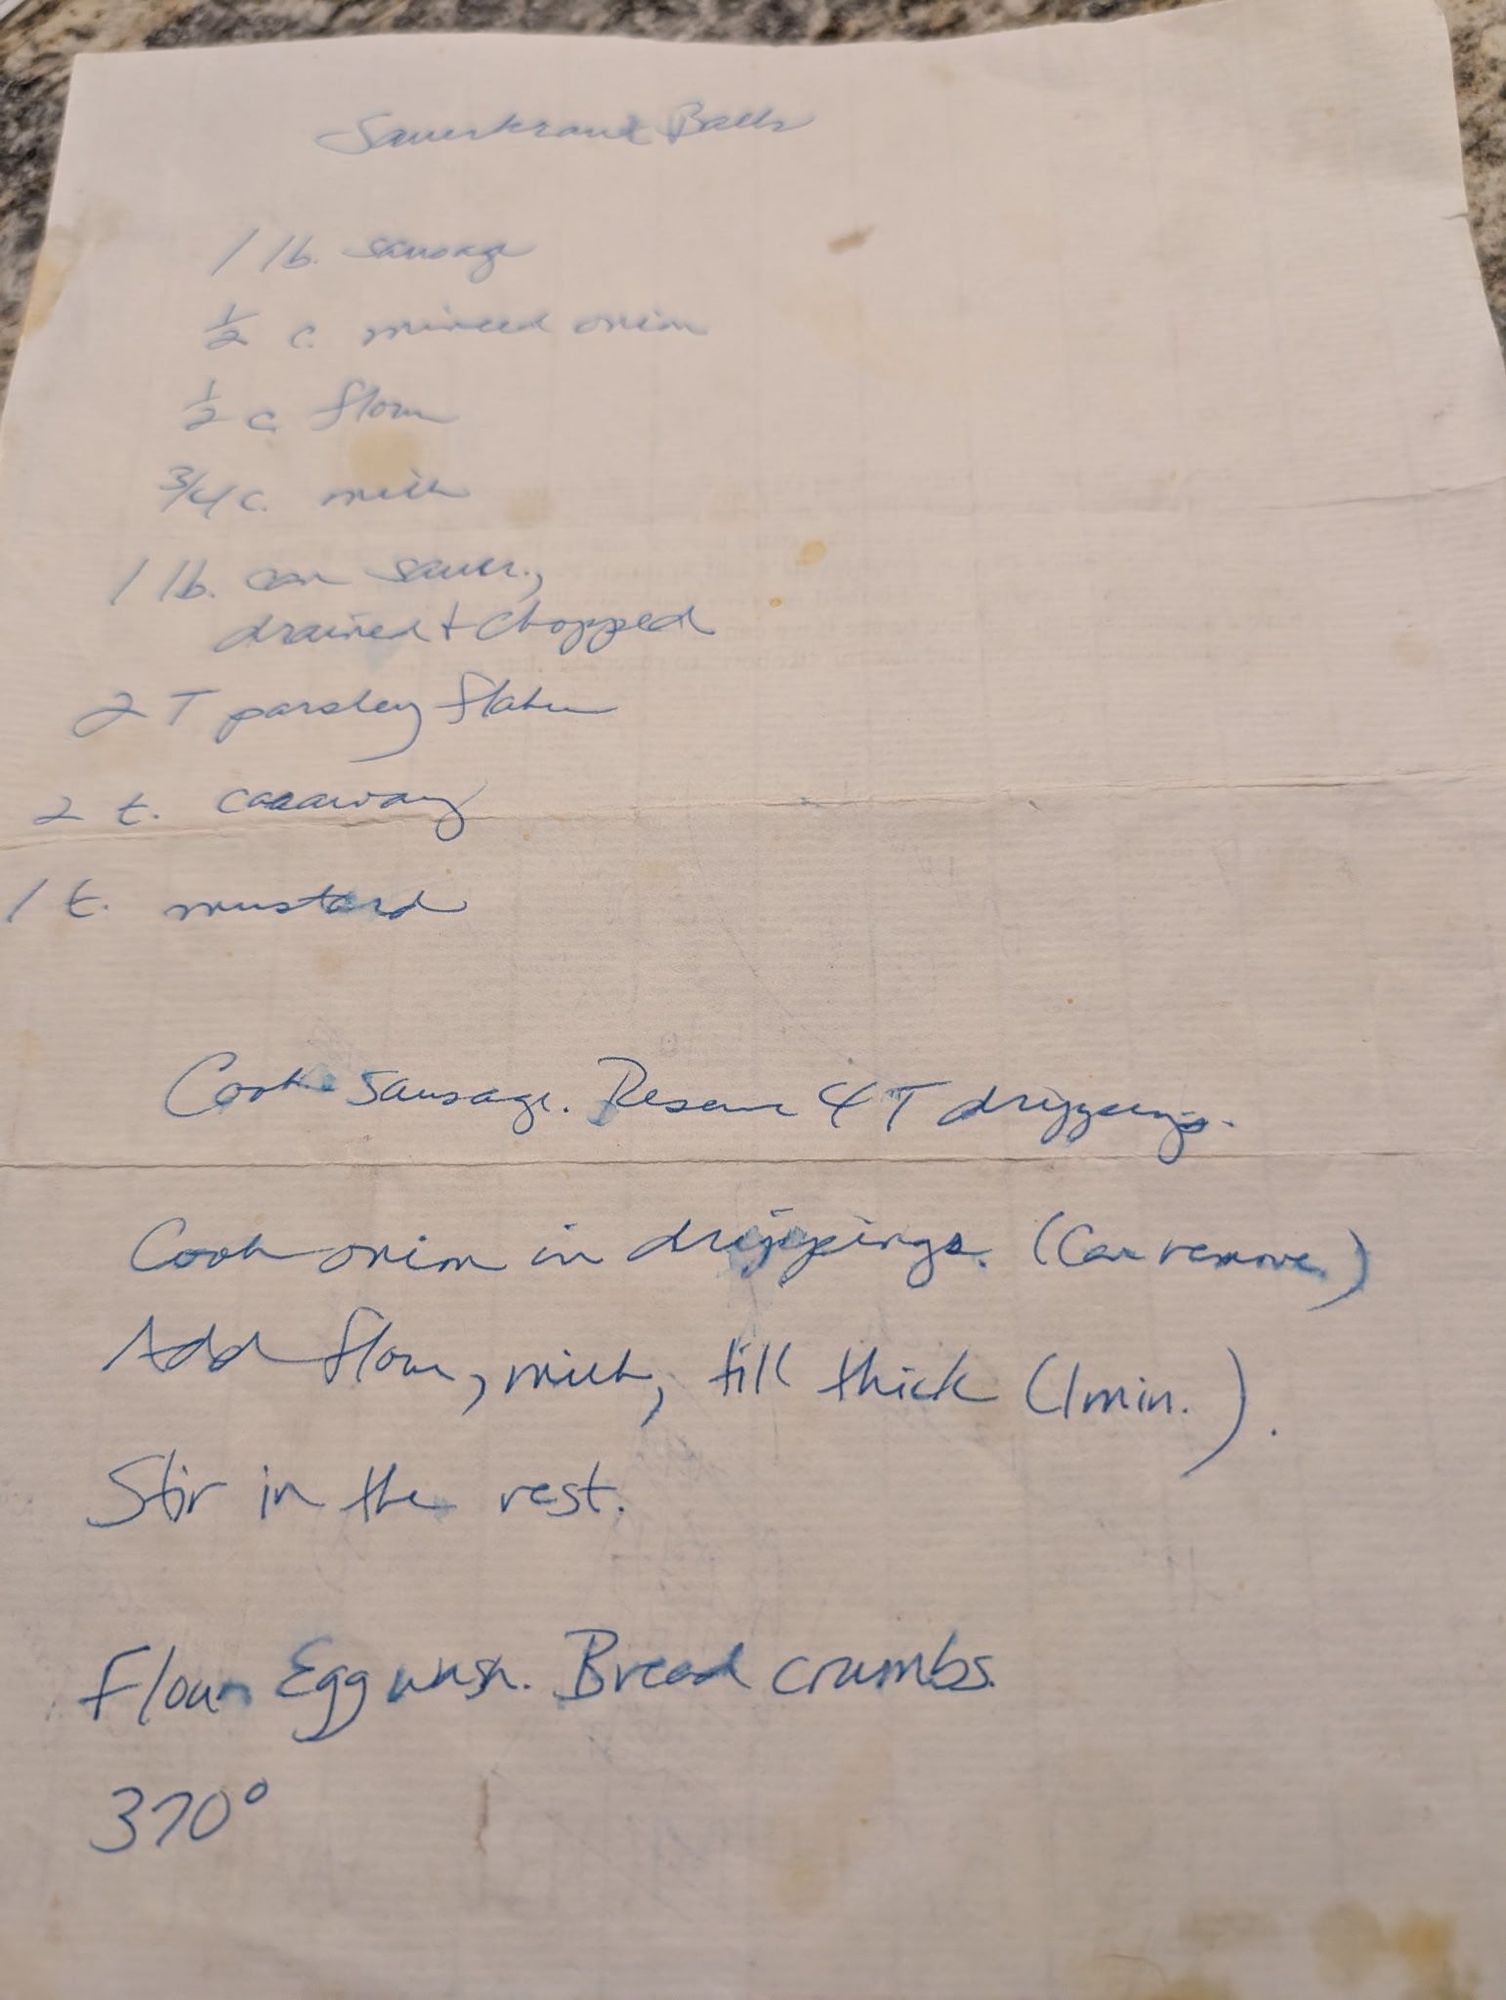 Sauerkraut Balls
1 lb. sausage
1/2 c. minced onion
1/2 c flour
3/4 c. milk
1 lb. can sauer.,
drained + chopped
2 T parsley flakes
2 t. caraway
1 t. mustard
Cook sausage. Reserve 4 T drippings.
Cook onion in drippings. (Can remove.)
Add flour, milk, till thick (1 min.).
Stir in the rest.
Flour. Egg wash. Bread crumbs.
370°